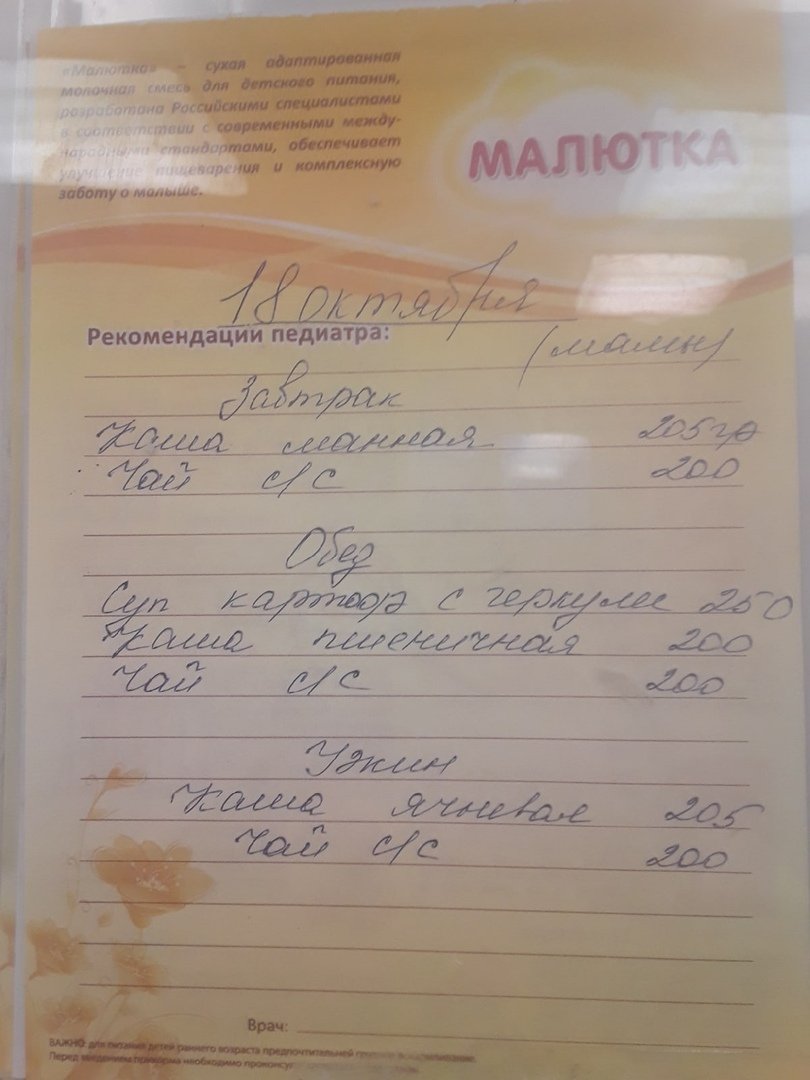 «Малютка» – сухая адаптированная
молочная смесь для детского питания,
разработана Российскими специалистами
в соответствии с современными между-
народными стандартами, обеспечивает
улучшение пищеварения и комплексную
заботу о малыше.
МАЛЮТКА
18 октября
Рекомендации педиатра:
(мамы)
Завтрак
Каша манная 205гр
Чай с/с 200
Обед
Суп картоф с геркулес 250
Каша пшеничная 200
Чай с/с 200
Ужин
Каша ячневая 205
Чай с/с 200
Врач:
ВАЖНО: для питания детей раннего возраста предпочтительней грудное вскармливание.
Перед введением прикорма необходимо